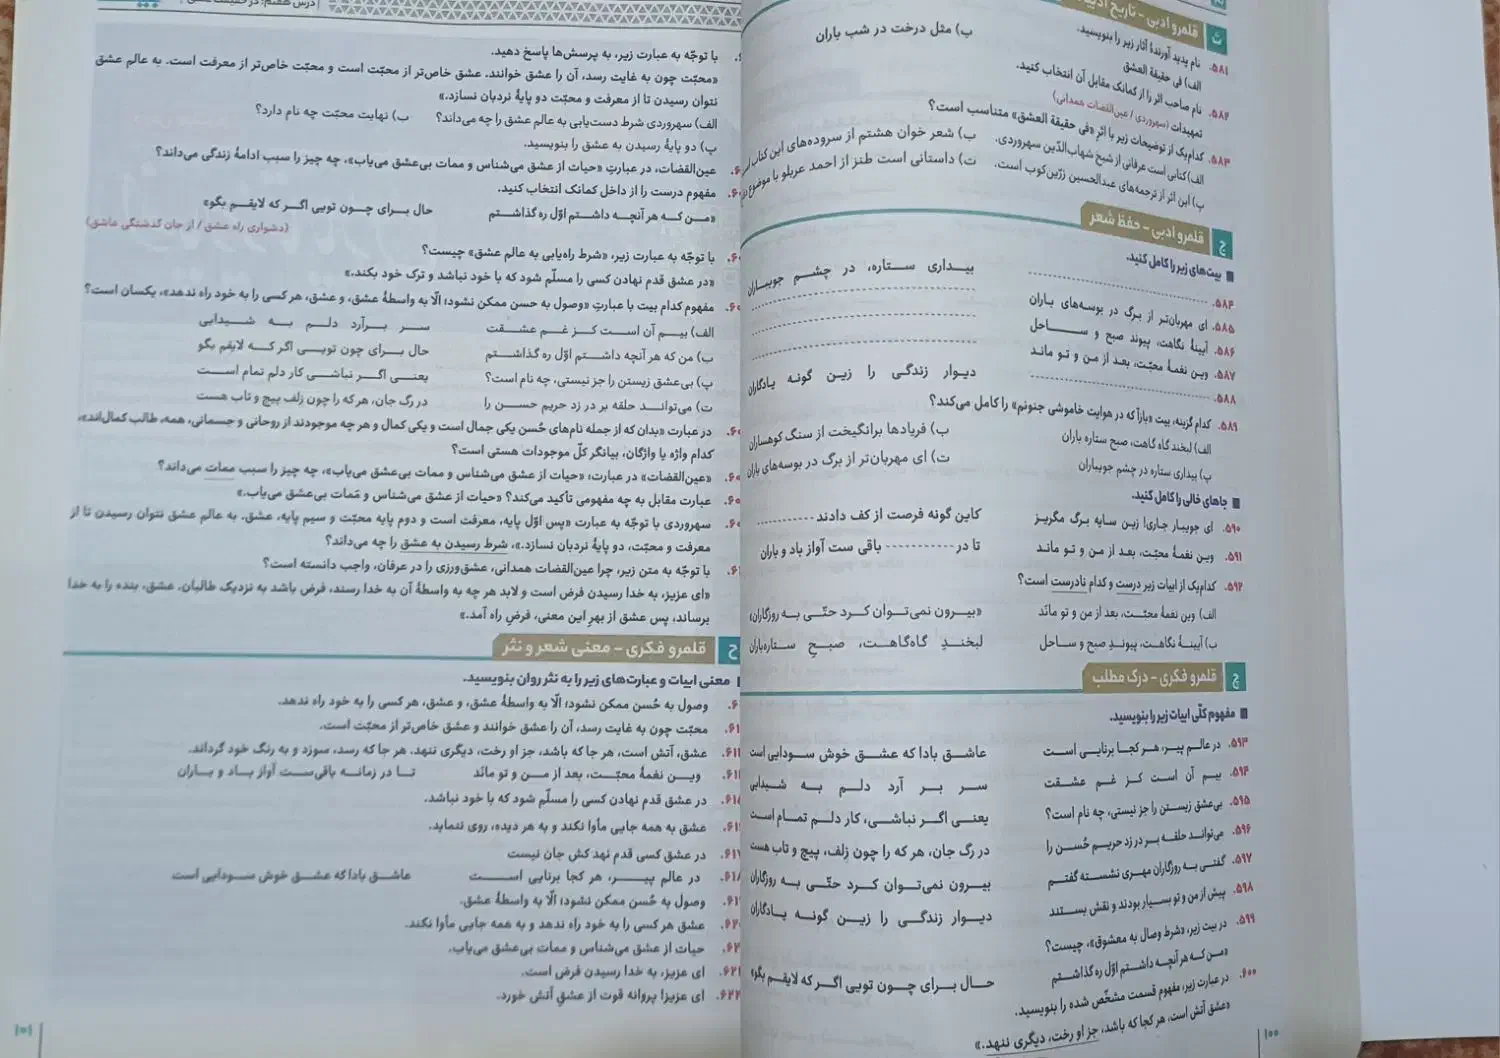 ث قلمرو ادبی - تاریخ ادبیات
نام پدید آورندهٔ آثار زیر را بنویسید.
۵۸۱. الف) فی حقیقة العشق ب) مثل درخت در شب باران
۵۸۲. نام صاحب اثر را از کمانک مقابل آن انتخاب کنید.
تمهیدات (سهروردی / عین‌القضات همدانی)
۵۸۳. کدام‌یک از توضیحات زیر با اثرِ «فی حقیقة العشق» متناسب است؟
الف) کتابی است عرفانی از شیخ شهاب‌الدّین سهروردی. ب) شعر خوان هشتم از سروده‌های این کتاب
پ) این اثر از ترجمه‌های عبدالحسین زرّین‌کوب است. ت) داستانی است طنز از احمد عربلو با موضوع
ج قلمرو ادبی - حفظ شعر
■ بیت‌های زیر را کامل کنید.
۵۸۴. ............ بیــداری ســتاره، در چشــم جویبــاران
۵۸۵. ای مهربان‌تر از برگ در بوسه‌های باران ............
۵۸۶. آیینهٔ نگاهت، پیوند صبح و ســاحل ............
۵۸۷. وین نغمهٔ محبّت، بعد از من و تو ماند ............
۵۸۸. ............ دیـوار زندگـی را زیـن گونه یـادگاران
۵۸۹. کدام گزینه، بیت «بازآ که در هوایت خاموشی جنونم» را کامل می‌کند؟
الف) لبخند گاه گاهت، صبح ستاره باران ب) فریادها برانگیخت از سنگ کوهساران
پ) بیداری ستاره در چشم جویباران ت) ای مهربان‌تر از برگ در بوسه‌های باران
■ جاهای خالی را کامل کنید.
۵۹۰. ای جویبـار جاری! زیـن سـایه بـرگ مگریـز کاین گونه فرصت از کف دادند ............
۵۹۱. وین نغمهٔ محبّت، بعد از من و تو مانـد تا در ............ باقی ست آواز باد و باران
۵۹۲. کدام‌یک از ابیات زیر درست و کدام نادرست است؟
الف) وین نغمهٔ محبّت، بعد از من و تو مانَد «بیـرون نمی‌تـوان کـرد حتّـی بـه روزگاران»
ب) آیینهٔ نگاهت، پیوندِ صبح و ساحل لبخندِ گاه‌گاهت، صبحِ ستاره‌باران
چ قلمرو فکری - درک مطلب
■ مفهوم کلّی ابیات زیر را بنویسید.
۵۹۳. در عالم پیر، هر کجا برنایی است عاشـق بادا که عشـق خوش سـودایی است
۵۹۴. بیـم آن اسـت کـز غـم عشـقت سـر بـر آرد دلـم بـه شـیدایی
۵۹۵. بی‌عشق زیستن را جز نیستی، چه نام است؟ یعنـی اگـر نباشـی، کار دلـم تمـام اسـت
۵۹۶. می‌توانـد حلقه بـر در زد حریـم حُسـن را در رگ جان، هر که را چون زلف، پیچ و تاب هست
۵۹۷. گفتـی بـه روزگاران مهـری نشسـته گفتـم بیـرون نمی‌تـوان کـرد حتّـی به روزگاران
۵۹۸. پیش از من و تو بسیار بودند و نقش بستند دیـوار زندگـی را زیـن گونـه یـادگاران
۵۹۹. در بیت زیر، «شرط وصال به معشوق»، چیست؟
«من کـه هر آنچه داشـتم اوّل ره گذاشـتم حـال بـرای چـون تویی اگـر که لایقـم بگو»
۶۰۰. در عبارت زیر، مفهوم قسمت مشخّص شده را بنویسید.
«عشق آتش است، هر کجا که باشد، جز او رخت، دیگری ننهد.»
۱۰۰
درس هفتم: در حقیقت عشق
با توجّه به عبارت زیر، به پرسش‌ها پاسخ دهید.
«محبّت چون به غایت رسد، آن را عشق خوانند. عشق خاص‌تر از محبّت است و محبّت خاص‌تر از معرفت است. به عالم عشق
نتوان رسیدن تا از معرفت و محبّت دو پایهٔ نردبان نسازد.»
الف) سهروردی شرط دست‌یابی به عالم عشق را چه می‌داند؟ ب) نهایت محبّت چه نام دارد؟
پ) دو پایهٔ رسیدن به عشق را بنویسید.
عین‌القضات، در عبارتِ «حیات از عشق می‌شناس و ممات بی‌عشق می‌یاب»، چه چیز را سبب ادامهٔ زندگی می‌داند؟
مفهوم درست را از داخل کمانک انتخاب کنید.
«مـن کـه هر آنچـه داشـتم اوّل ره گذاشـتم حال بـرای چـون تویی اگـر که لایقـم بگو»
(دشواری راه عشق / از جان گذشتگی عاشق)
با توجّه به عبارت زیر، «شرط راه‌یابی به عالم عشق» چیست؟
«در عشق قدم نهادن کسی را مسلّم شود که با خود نباشد و ترک خود بکند.»
مفهوم کدام بیت با عبارتِ «وصول به حسن ممکن نشود؛ الّا به واسطهٔ عشق، و عشق، هر کسی را به خود راه ندهد»، یکسان است؟
الف) بیـم آن اسـت کـز غـم عشـقت سـر بـرآرد دلـم بـه شـیدایی
ب) من که هر آنچه داشتم اوّل ره گذاشتم حال برای چون تویی اگـر کـه لایقم بگو
پ) بی‌عشق زیستن را جز نیستی، چه نام است؟ یعنـی اگـر نباشـی کار دلم تمام اسـت
ت) می‌توانـد حلقه بر در زد حریم حسـن را در رگ جان، هر که را چون زلف پیچ و تاب هست
در عبارت «بدان که از جمله نام‌های حُسن یکی جمال است و یکی کمال و هر چه موجودند از روحانی و جسمانی، همه، طالب کمال‌اند»،
کدام واژه یا واژگان، بیانگر کلّ موجودات هستی است؟
«عین‌القضات» در عبارت، «حیات از عشق می‌شناس و ممات بی‌عشق می‌یاب»، چه چیز را سبب ممات می‌داند؟
عبارت مقابل به چه مفهومی تأکید می‌کند؟ «حیات از عشق می‌شناس و مَمات بی‌عشق می‌یاب.»
سهروردی با توجّه به عبارت «پس اوّل پایه، معرفت است و دوم پایه محبّت و سیم پایه، عشق. به عالم عشق نتوان رسیدن تا از
معرفت و محبّت، دو پایهٔ نردبان نسازد.»، شرط رسیدن به عشق را چه می‌داند؟
با توجّه به متن زیر، چرا عین‌القضات همدانی، عشق‌ورزی را در عرفان، واجب دانسته است؟
«ای عزیز، به خدا رسیدن فرض است و لابد هر چه به واسطهٔ آن به خدا رسند، فرض باشد به نزدیک طالبان. عشق، بنده را به خدا
برساند، پس عشق از بهرِ این معنی، فرضِ راه آمد.»
ح قلمرو فکری - معنی شعر و نثر
معنی ابیات و عبارت‌های زیر را به نثر روان بنویسید.
وصول به حُسن ممکن نشود؛ الّا به واسطهٔ عشق، و عشق، هر کسی را به خود راه ندهد.
محبّت چون به غایت رسد، آن را عشق خوانند و عشق خاص‌تر از محبّت است.
عشق، آتش است، هر جا که باشد، جز او رخت، دیگری ننهد. هر جا که رسد، سوزد و به رنگ خود گرداند.
ویـن نغمهٔ محبّـت، بعد از مـن و تو مانَد تـا در زمانـه باقی‌سـت آواز بـاد و بـاران
در عشق قدم نهادن کسی را مسلّم شود که با خود نباشد.
عشق به همه جایی مأوا نکند و به هر دیده، روی ننماید.
در عشق کسی قدم نهد کش جان نیست
در عالم پیـر، هر کجا برنایی اسـت عاشـق بادا که عشـق خوش سـودایی است
وصول به حُسن ممکن نشود؛ الّا به واسطهٔ عشق.
عشق هر کسی را به خود راه ندهد و به همه جایی مأوا نکند.
حیات از عشق می‌شناس و ممات بی‌عشق می‌یاب.
ای عزیز، به خدا رسیدن فرض است.
ای عزیز! پروانه قوت از عشقِ آتش خورد.
۱۰۱